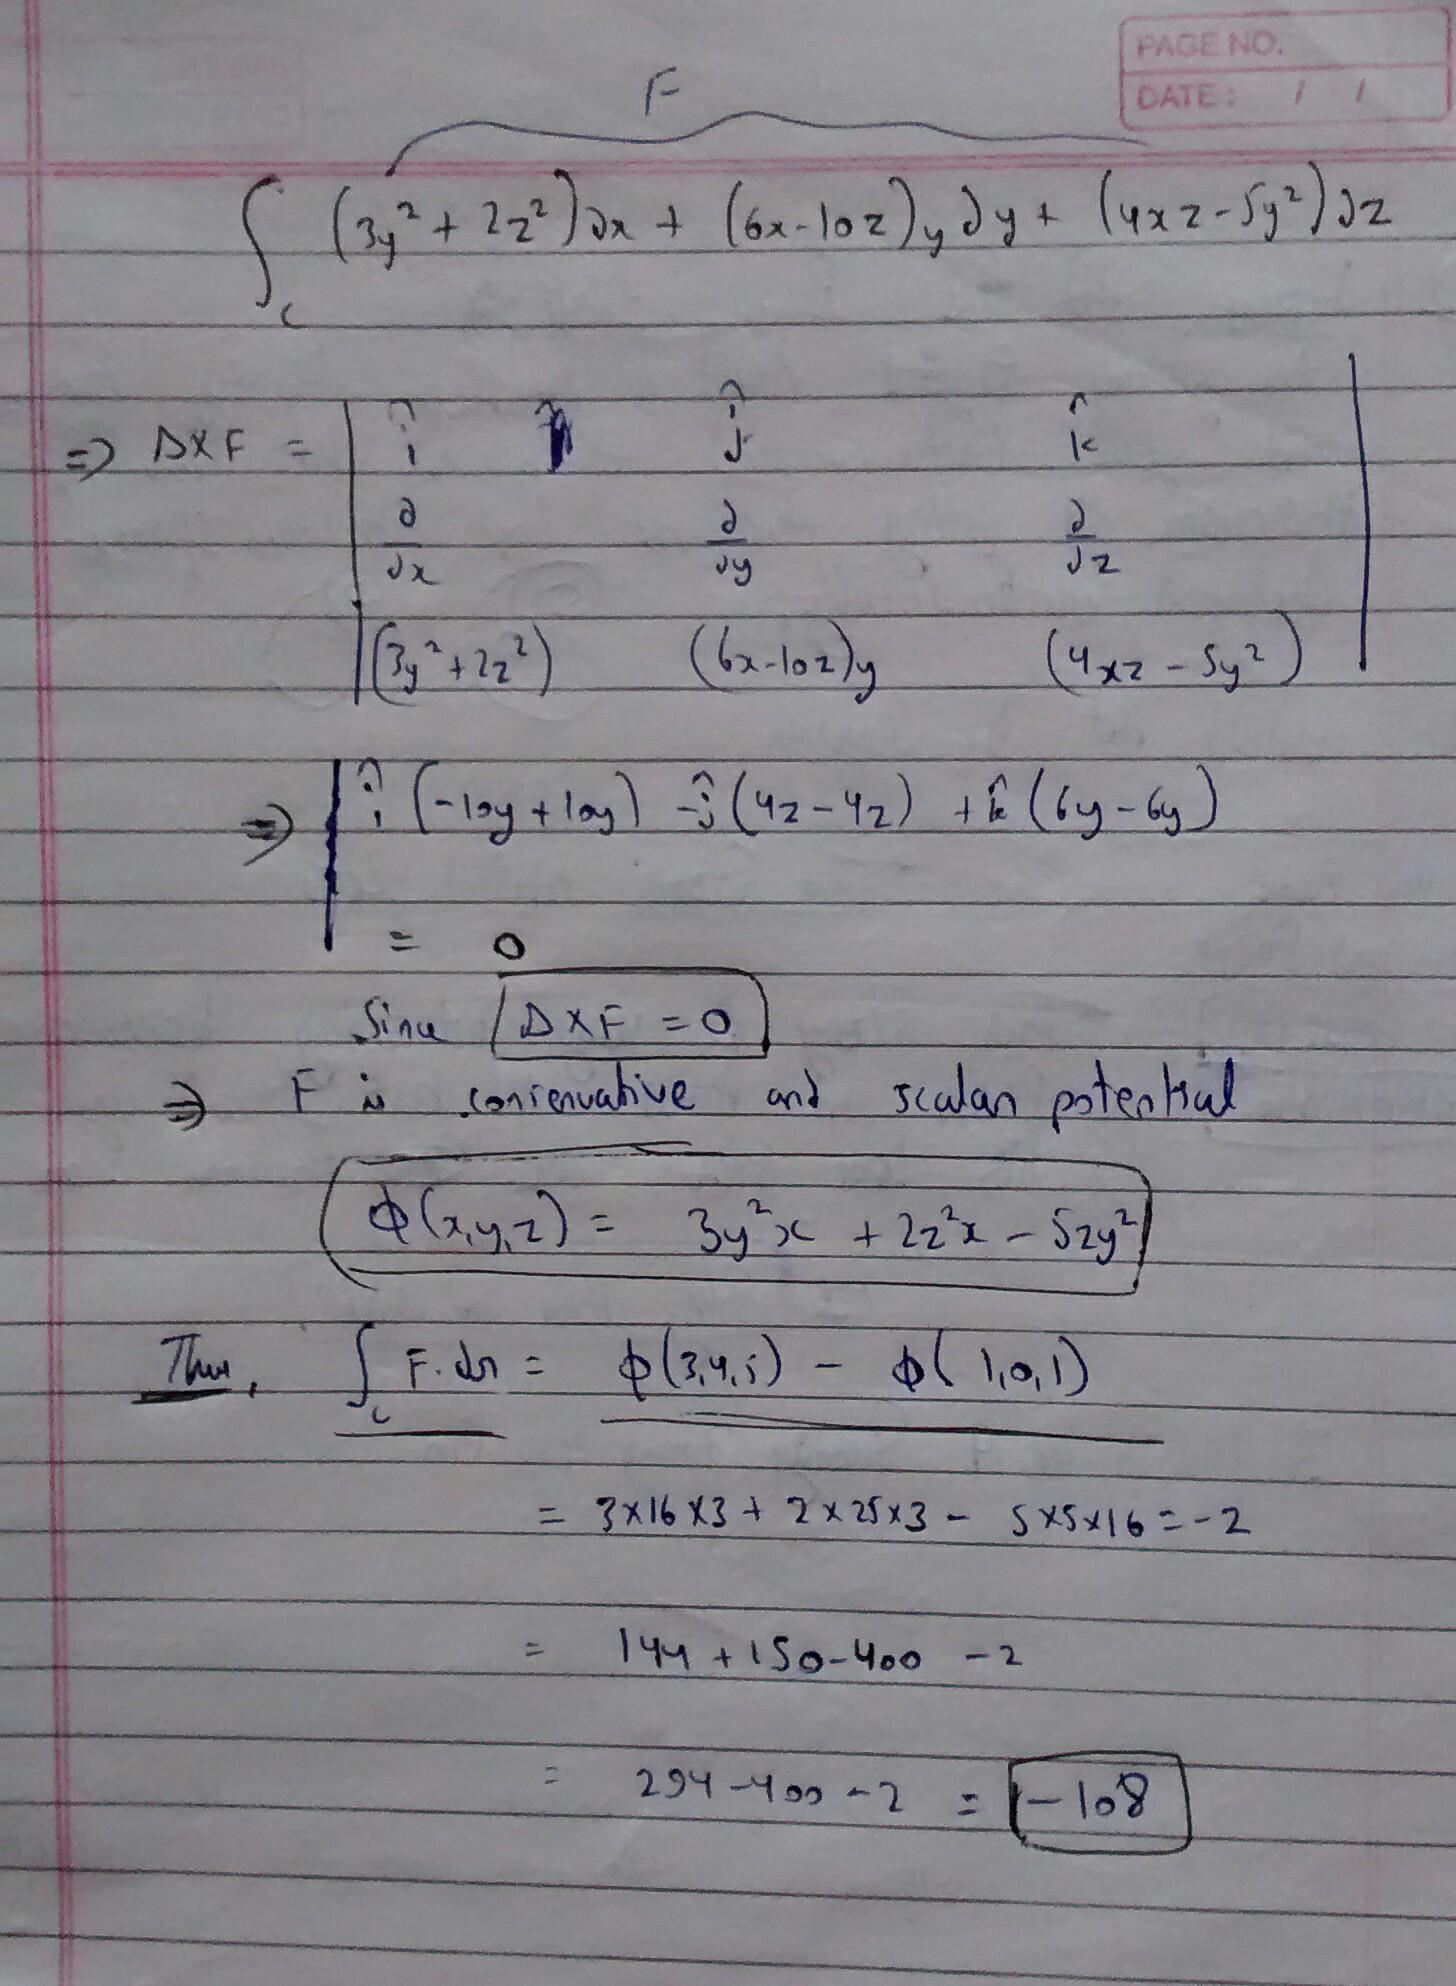 PAGE NO.
DATE: / /
F
∫_C (3y² + 2z²)∂x + (6x-10z)y∂y + (4xz-5y²)∂z
⇒ ΔXF = | î ĵ k̂ |
∂/∂x ∂/∂y ∂/∂z
(3y²+2z²) (6x-10z)y (4xz-5y²)
⇒ | î(-10y+10y) -ĵ(4z-4z) + k̂(6y-6y)
= 0
Since ΔXF = 0
⇒ F is conservative and scalar potential
Φ(x,y,z) = 3y²x + 2z²x - 5zy²
Thus, ∫_C F.dr = ϕ(3,4,5) - ϕ(1,0,1)
= 3×16×3 + 2×25×3 - 5×5×16 = -2
= 144 + 150-400 -2
= 294-400-2 = -108